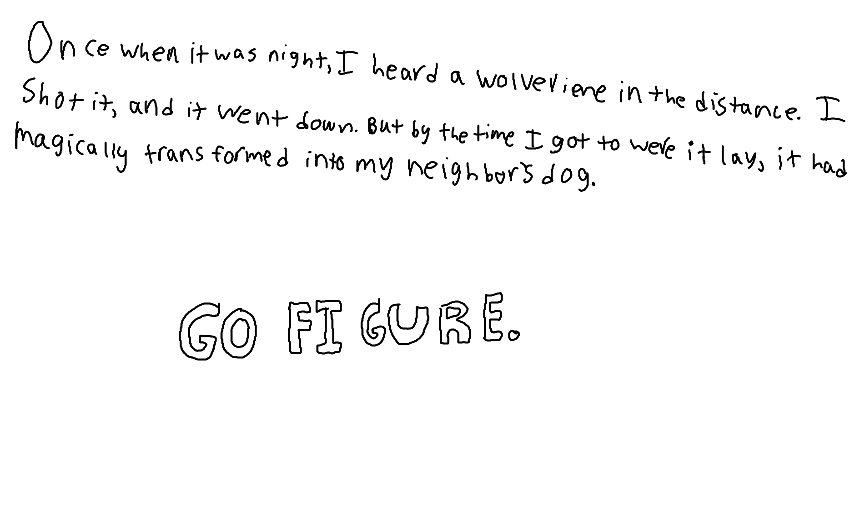 Once when it was night, I heard a wolveriene in the distance. I
Shot it, and it went down. But by the time I got to were it lay, it had
magically transformed into my neighbor's dog.
GO FIGURE.